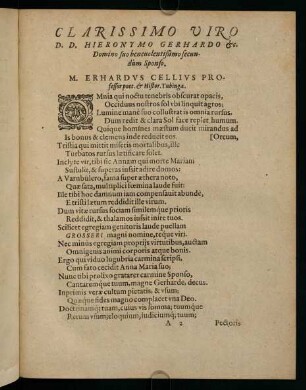 CLARISSIMO VIRO
D. D. HIERONYMO GERHARDO &c.
Domino suo beneuolentissimo secun-
dùm Sponso,
M. ERHARDVS CELLIVS PRO-
fessor poet. & Histor. Tubingæ.
OMnia qui noctu tenebris obscurat opacis,
Occiduus nostros sol vbi linquit agros:
Lumine manè suo collustrat is omnia rursus.
Dum redit & clara Sol face reptet humum.
Quiq́ue homines mœstum ducit mirandus ad
Is bonus & clemens inde reducit eos. [Orcum,
Tristia qui mittit miseris mortalibus, ille
Turbatos rursus lætificare solet.
Inclyte vir, tibi sic Annam qui morte Mariam
Sustulit, & superas iussit adire domos:
A Varnbülero, fama super æthera noto,
Quæ sata, multiplici fœmina laude fuit:
Ille tibi hoc damnum iam compensauit abundè,
Et tristi lætum reddidit ille virum.
Dum vitæ rursus sociam similemq́ue prioris
Reddidit, & thalamos iussit inire tuos.
Scilicet egregiam genitoris laude puellam
GROSSERI magni nomine, teq́ue viri.
Nec minùs egregiam proprijs virtutibus, austam
Omnigenis animi corporis atq́ue bonis.
Ergo qui viduo lugubria carmina scripsi,
Cum fato cecidit Anna Maria suo;
Nunc tibi prolixo gratarer carmine Sponso,
Cantaremq́ue tuum, magne Gerharde, decus.
Inprimis veræ cultum pietatis, & vsum:
Quæq́ue fides magno complacet vna Deo.
Doctrinamq́; tuam, cuius vis summa; tuumq́ue
Rerum vsum; eloquium, iudiciumq́; tuum;
A 2 Pectoris